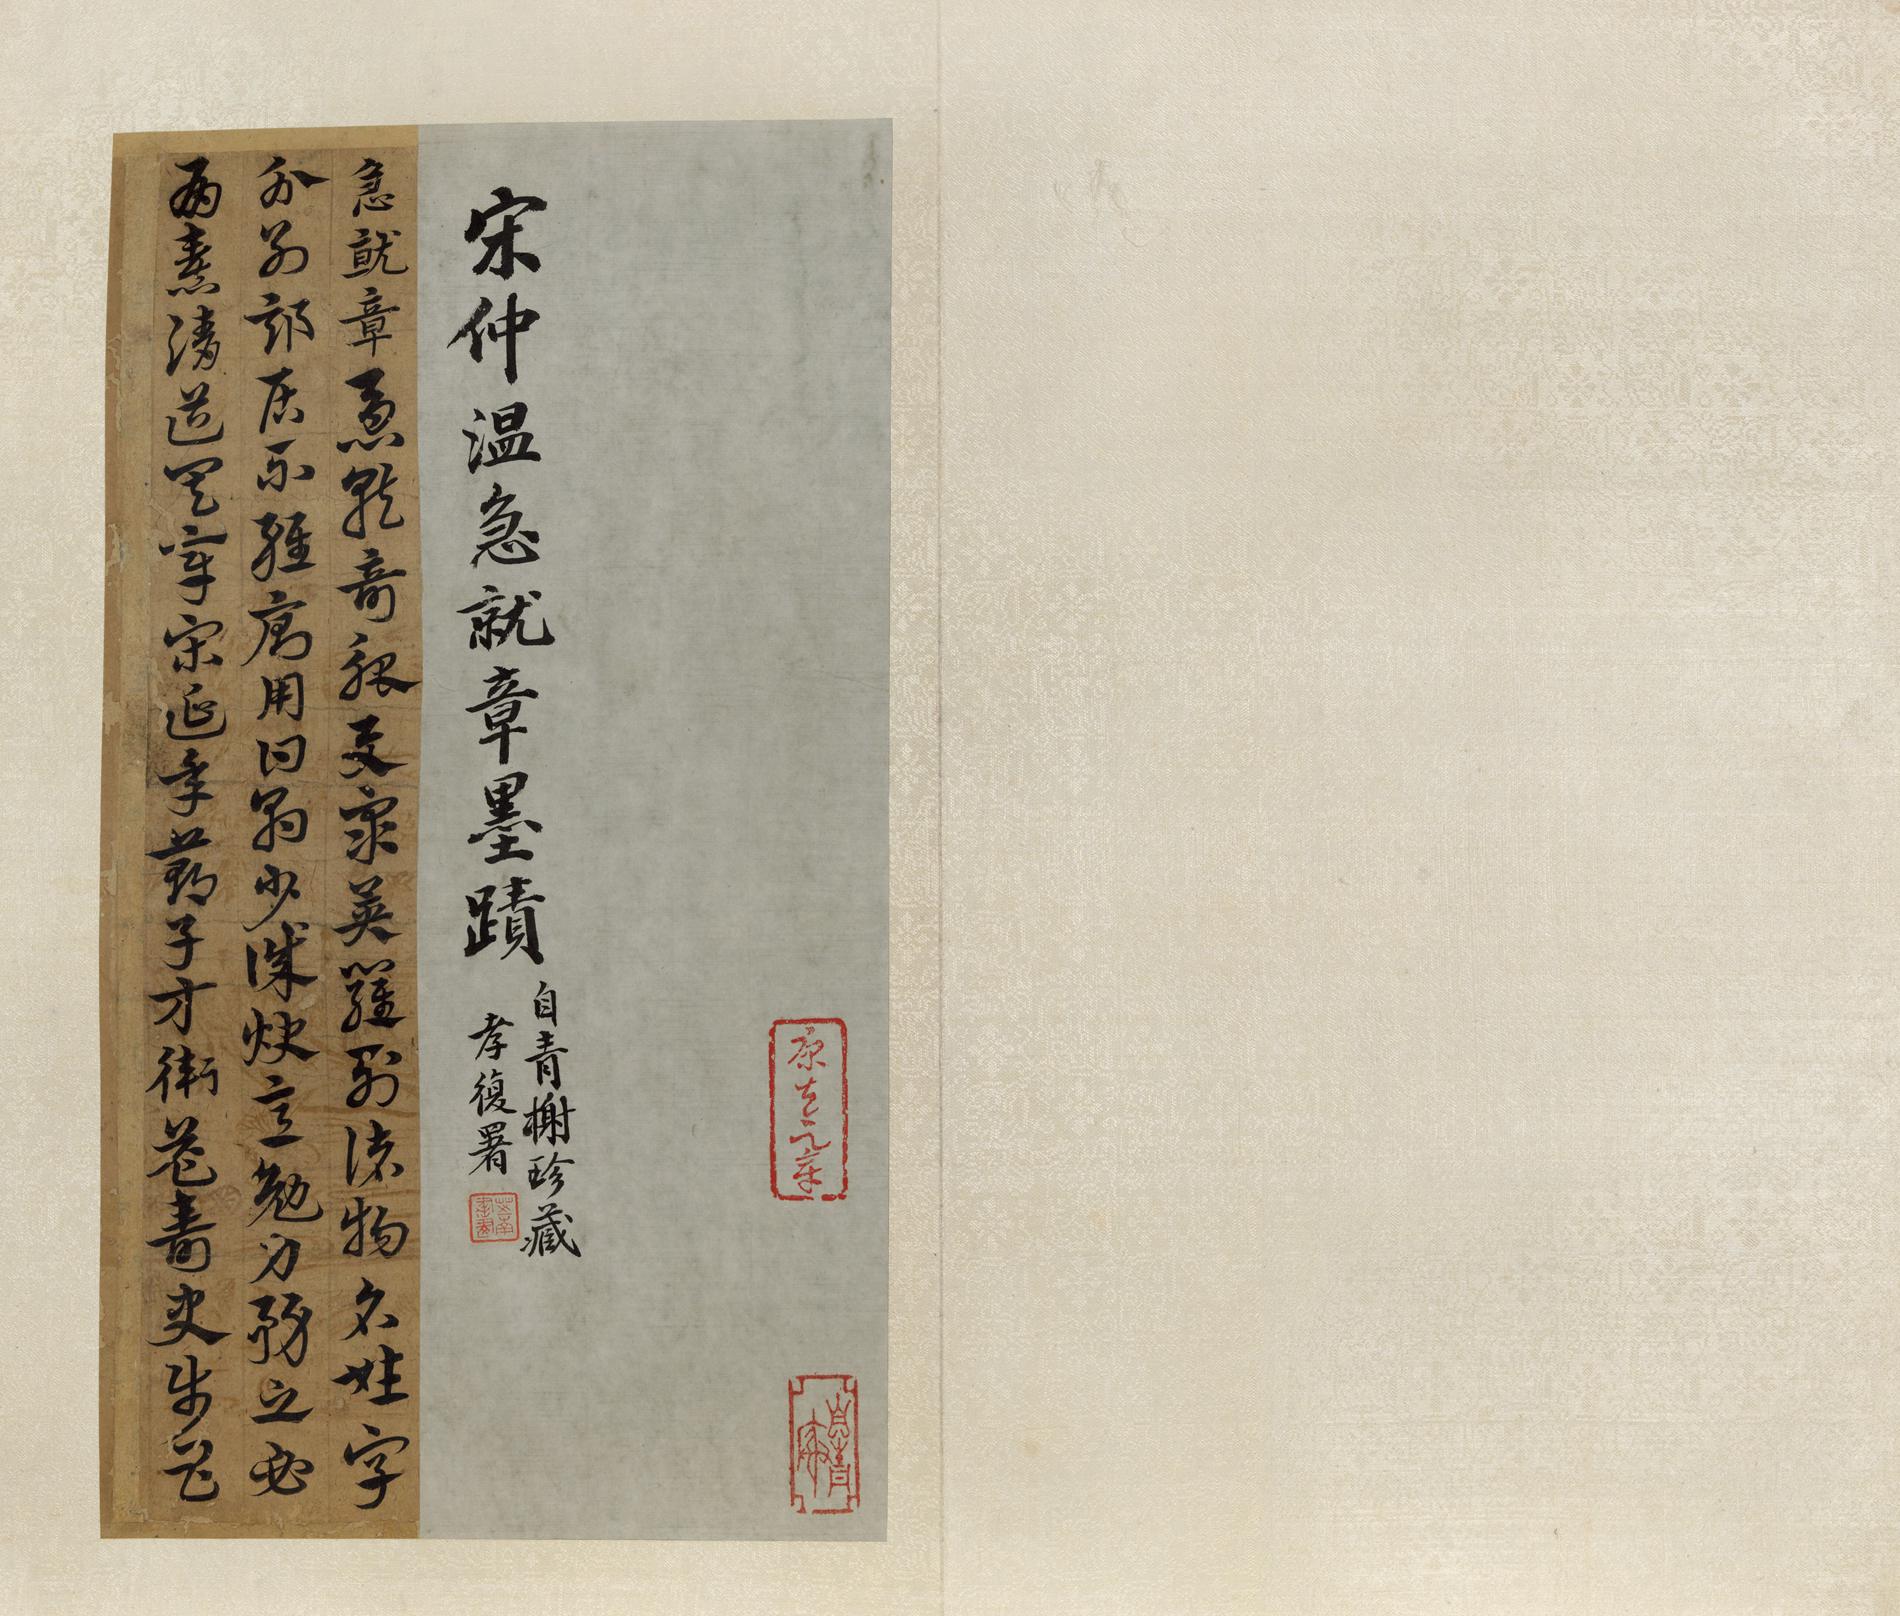 宋仲温急就章墨蹟
自青榭珍藏
孝復署
急就章急就奇觚與衆異羅列諸物名姓字
分別部居不雜廁用日約少誠快意勉力務之必
有憙請道其章宋延年鄭子方衛益壽史步昌